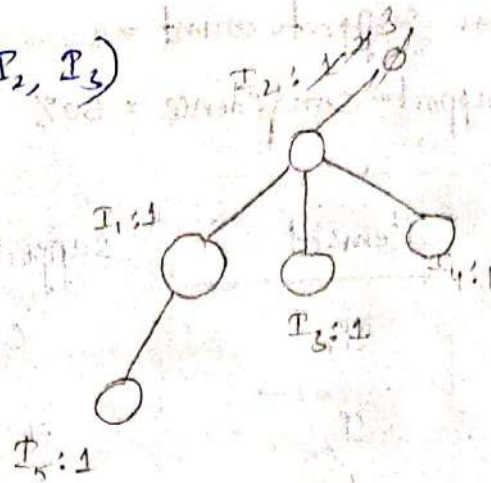 I₂, I₃)
I₂: 1 2 3
φ
I₁:1
I₄:1
I₃:1
I₅:1